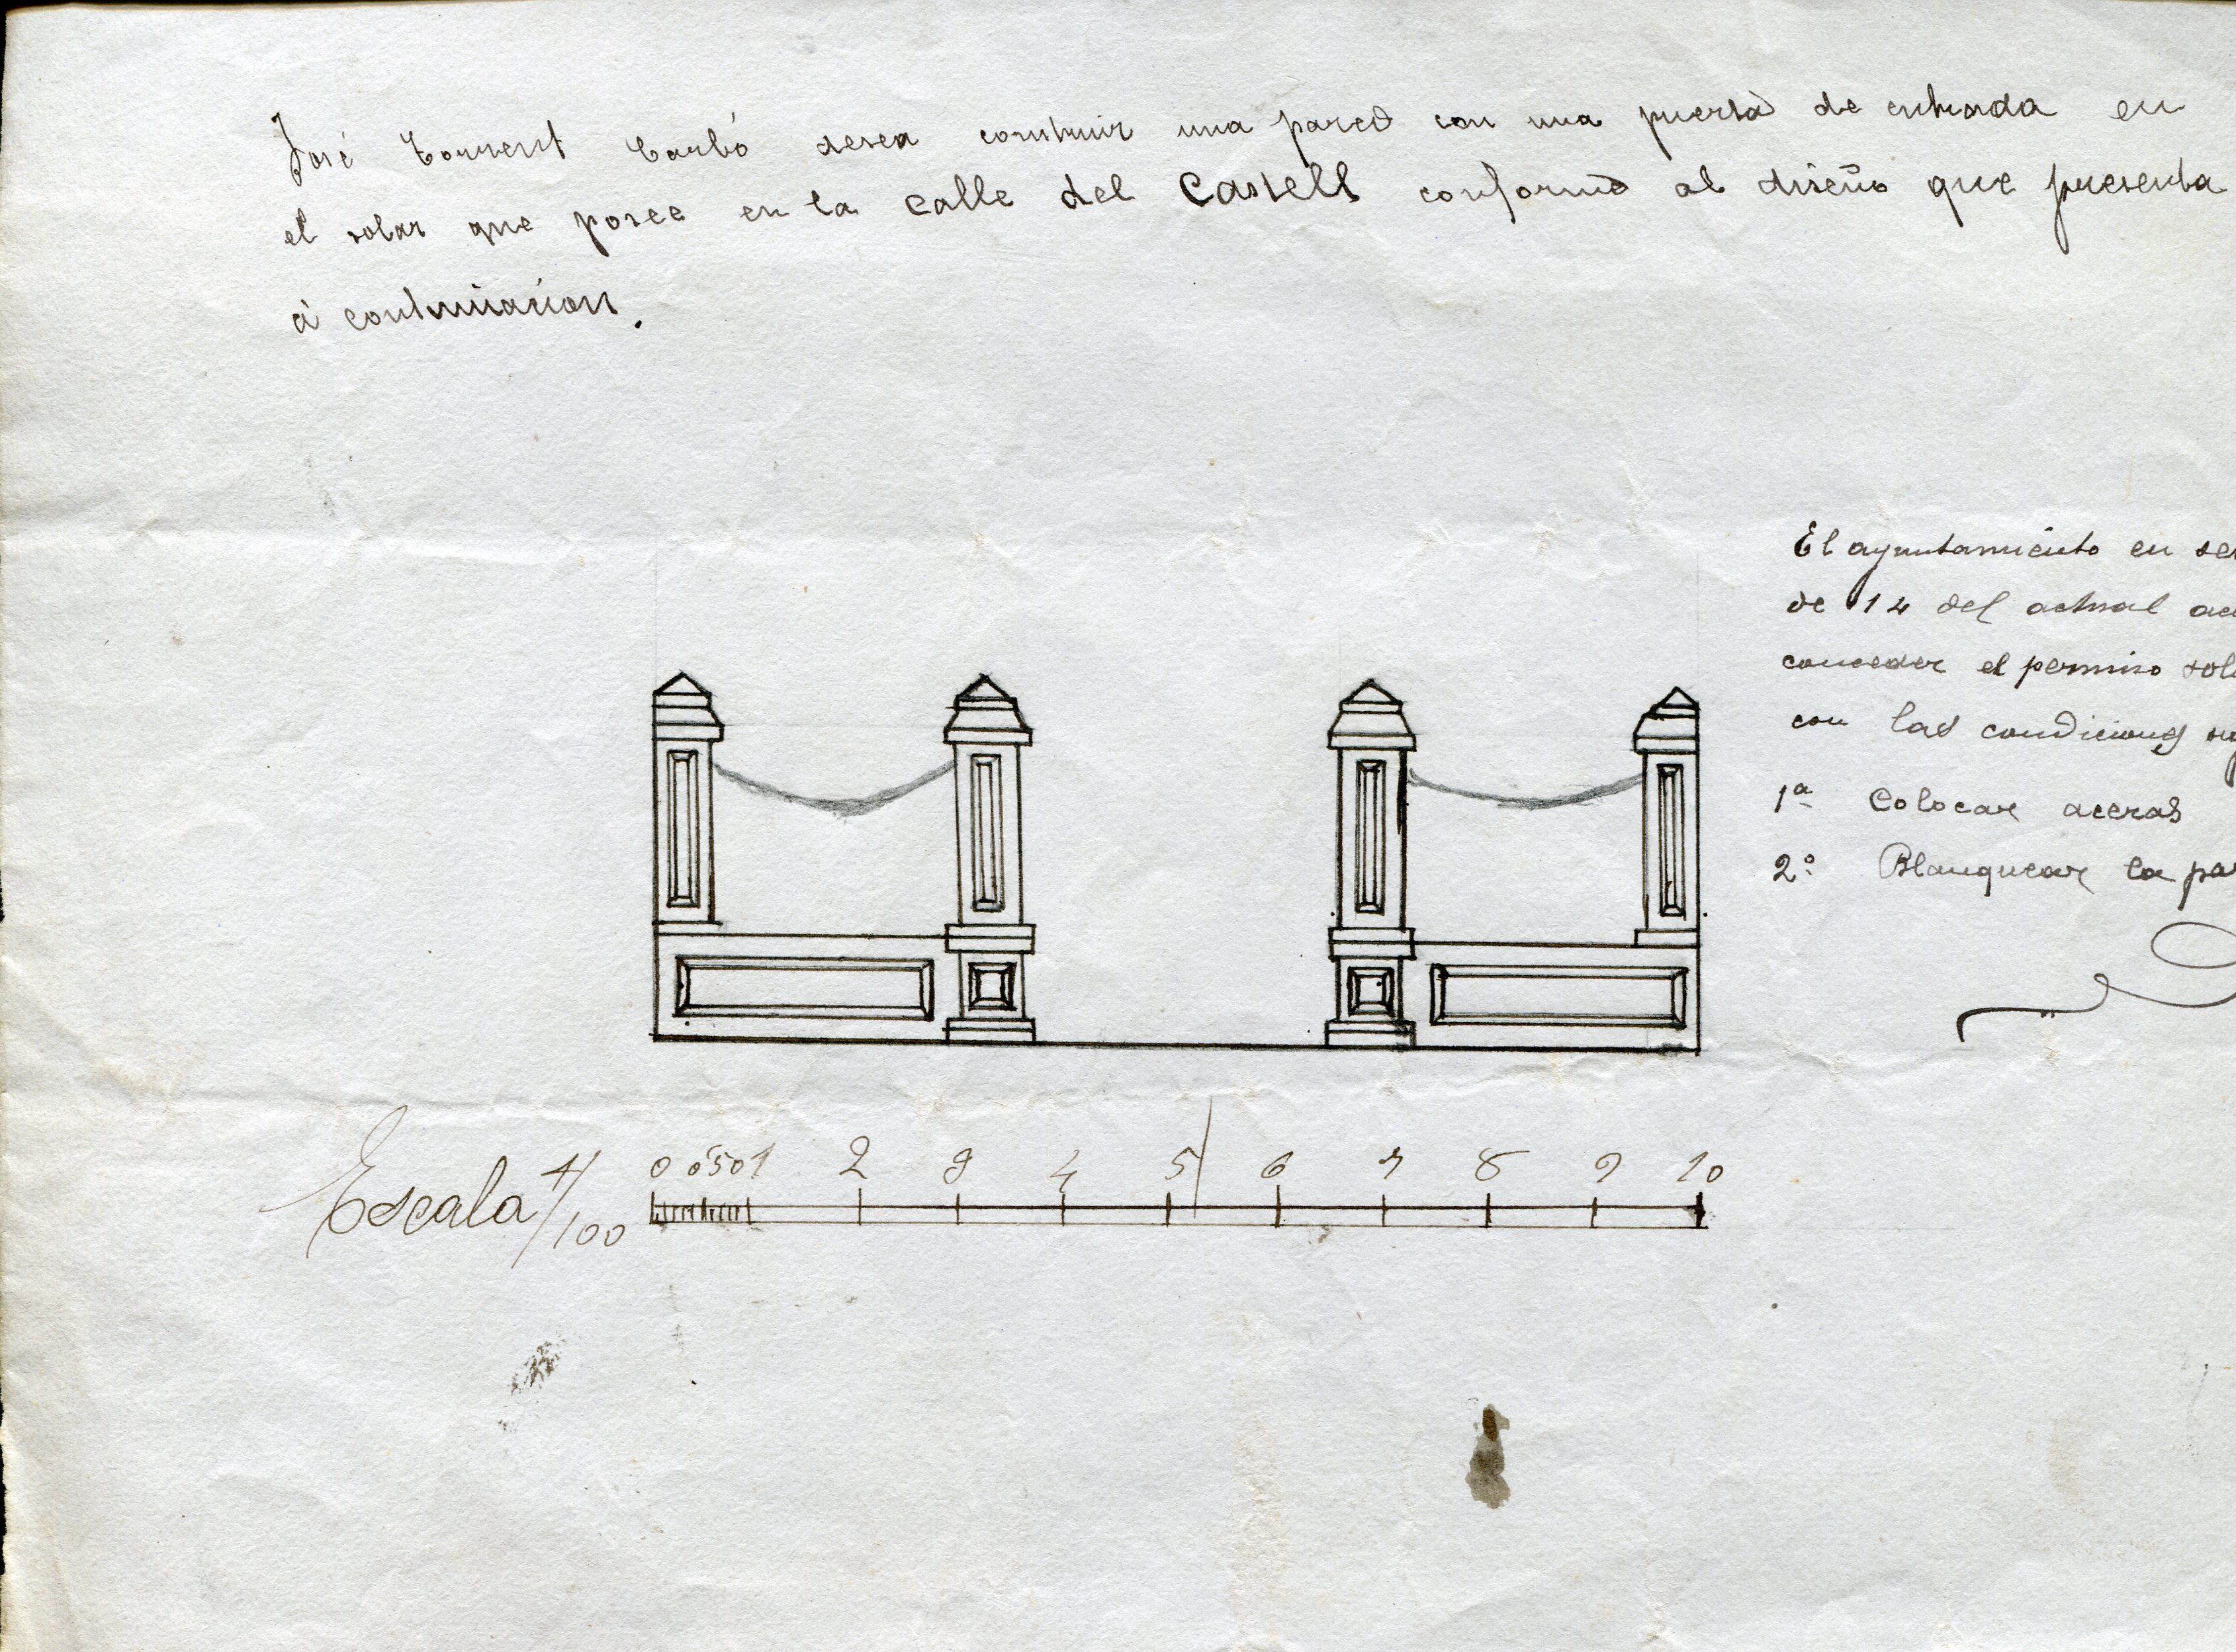 José Torrent Carbó desea construir una pared con una puerta de entrada en
el solar que posee en la calle del Castell conforme al diseño que presenta
á continuación.
El ayuntamiento en se
de 14 del actual ac
conceder el permiso soli
con las condiciones
1ª Colocar aceras
2º Blanquear la pa
0 0'50 1 2 3 4 5 6 7 8 9 10
Escala 1/100